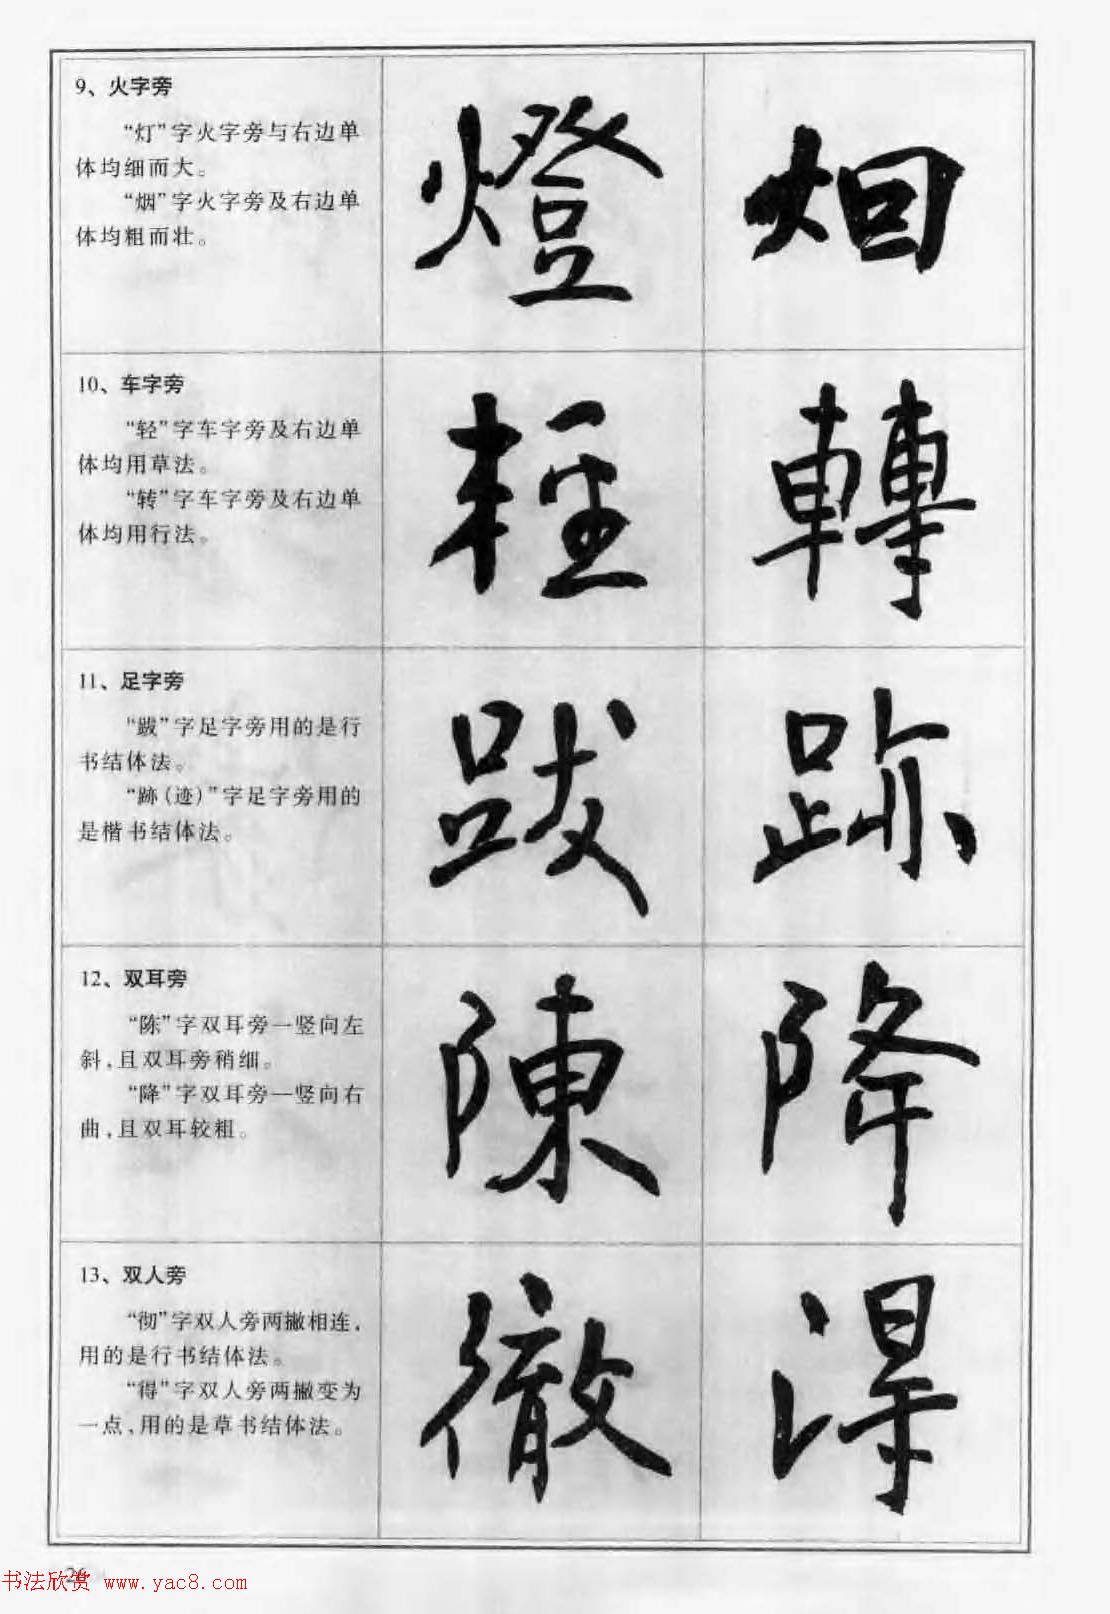 9、火字旁
“灯”字火字旁与右边单
体均细而大。
“烟”字火字旁及右边单
体均粗而壮。
燈 烟
10、车字旁
“轻”字车字旁及右边单
体均用草法。
“转”字车字旁及右边单
体均用行法。
輕 轉
11、足字旁
“跋”字足字旁用的是行
书结体法。
“跡(迹)”字足字旁用的
是楷书结体法。
跋 跡
12、双耳旁
“陈”字双耳旁一竖向左
斜,且双耳旁稍细。
“降”字双耳旁一竖向右
曲,且双耳较粗。
陳 降
13、双人旁
“彻”字双人旁两撇相连,
用的是行书结体法。
“得”字双人旁两撇变为
一点,用的是草书结体法。
徹 得
26
书法欣赏 www.yac8.com